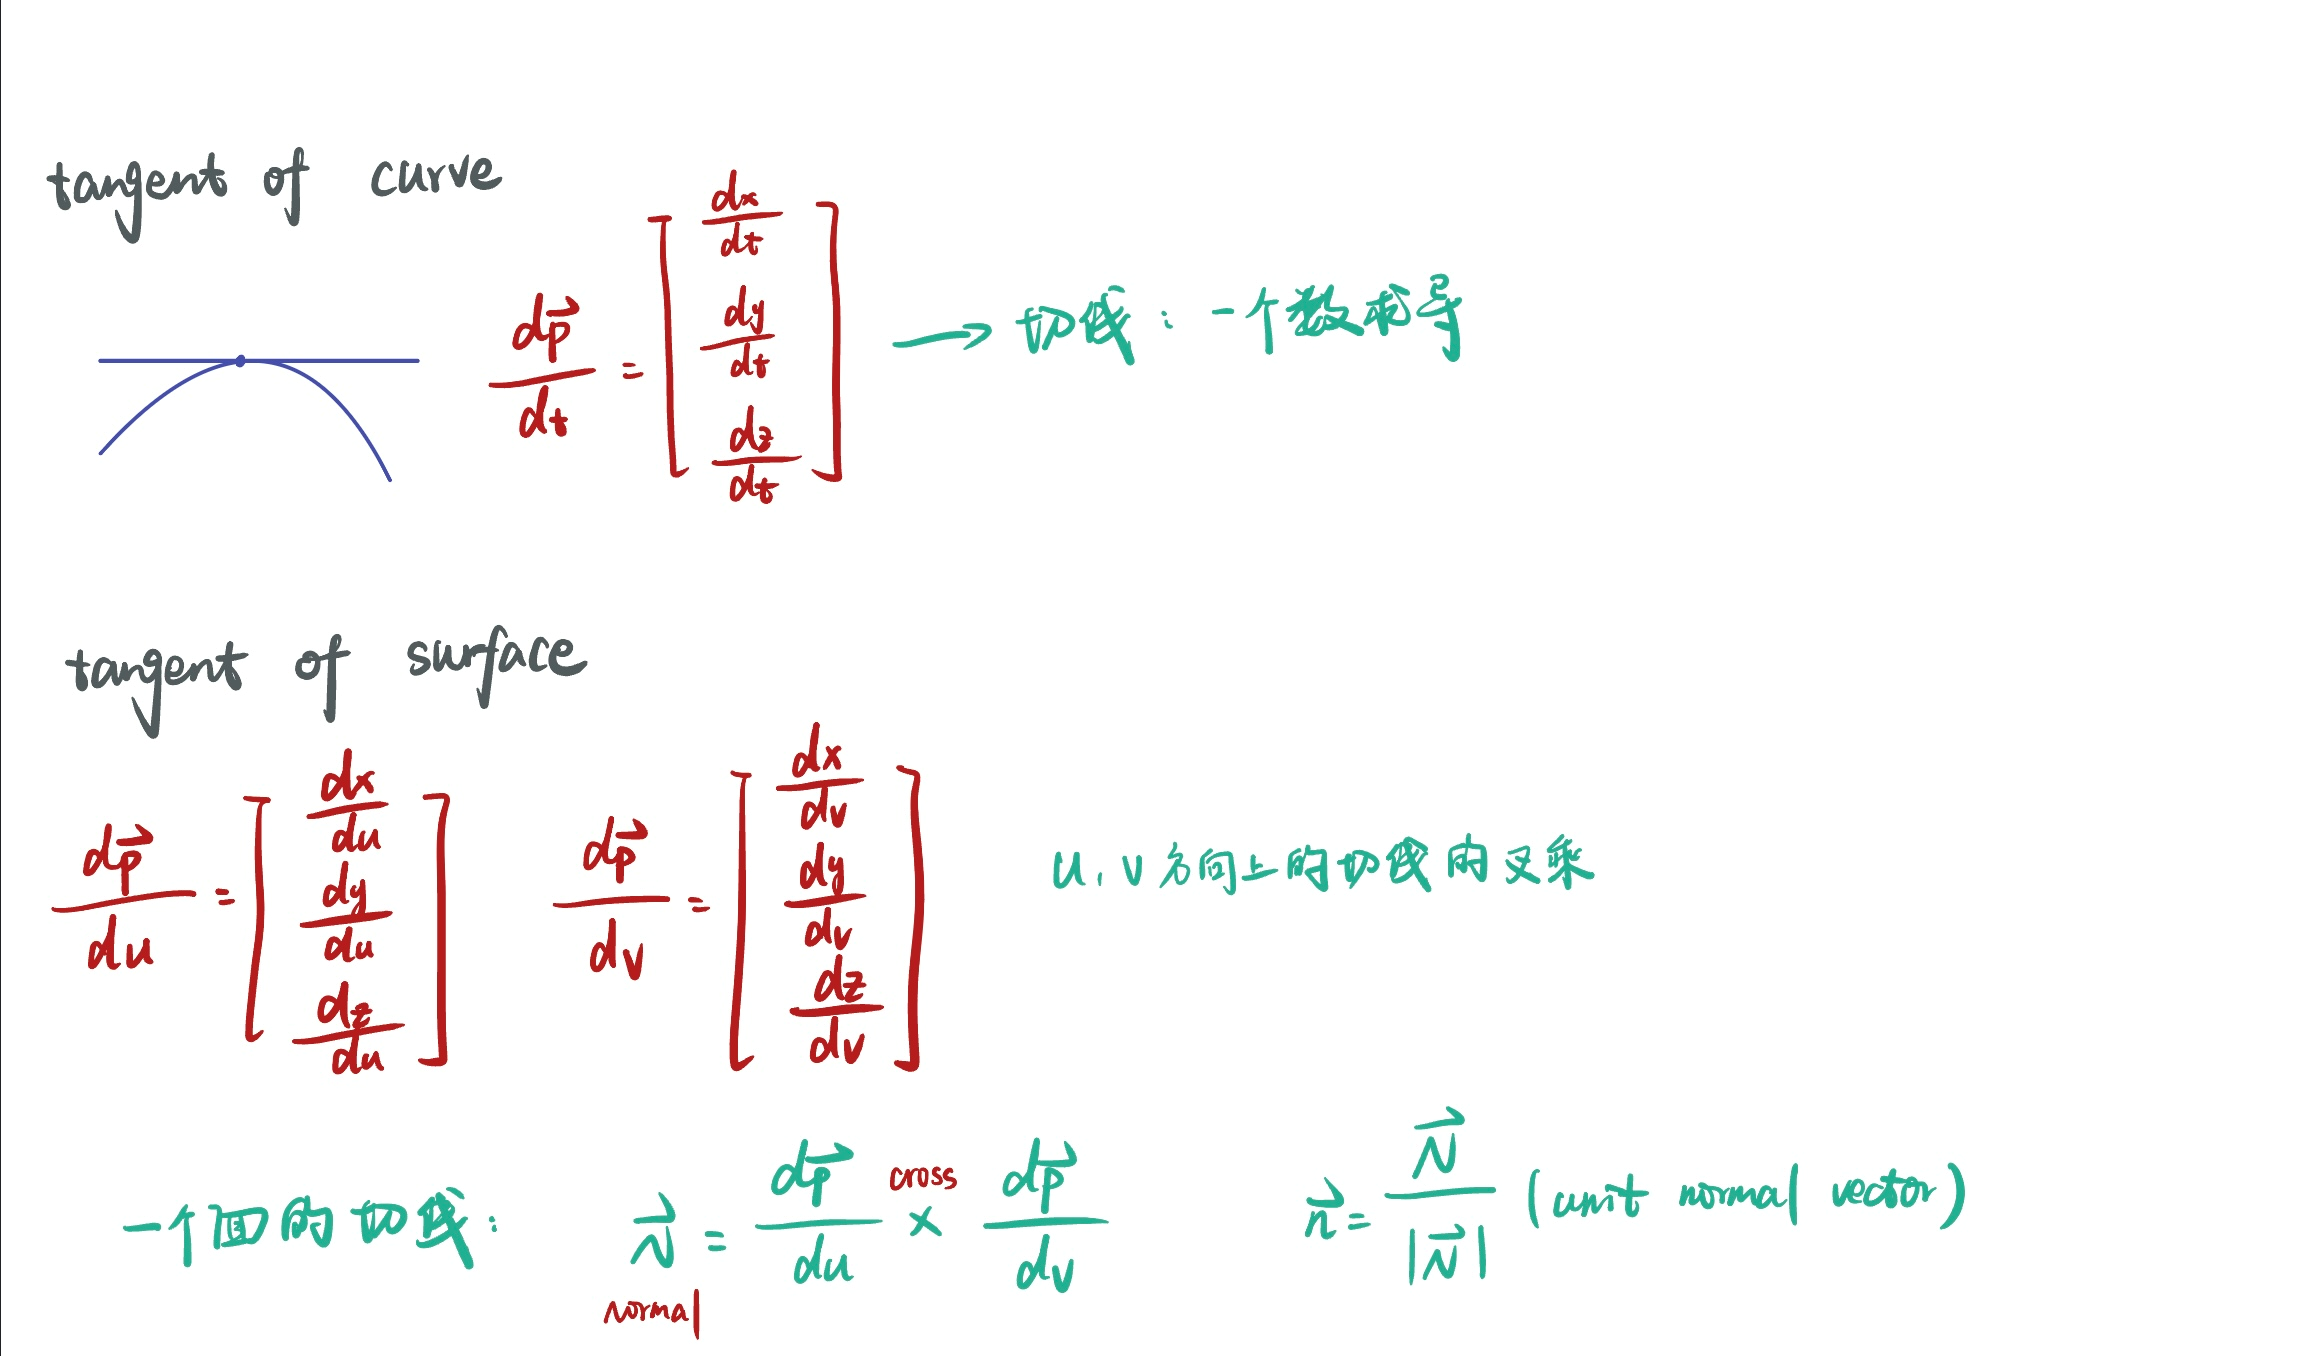 tangent of curve
dp⃗/dt = [dx/dt dy/dt dz/dt] → 切线：一个数求导
tangent of surface
dp⃗/du = [dx/du dy/du dz/du] dp⃗/dv = [dx/dv dy/dv dz/dv] u, v 方向上的切线的叉乘
一个面的切线： N⃗ = dp⃗/du × dp⃗/dv n⃗ = N⃗/|N⃗| (unit normal vector)
cross
normal